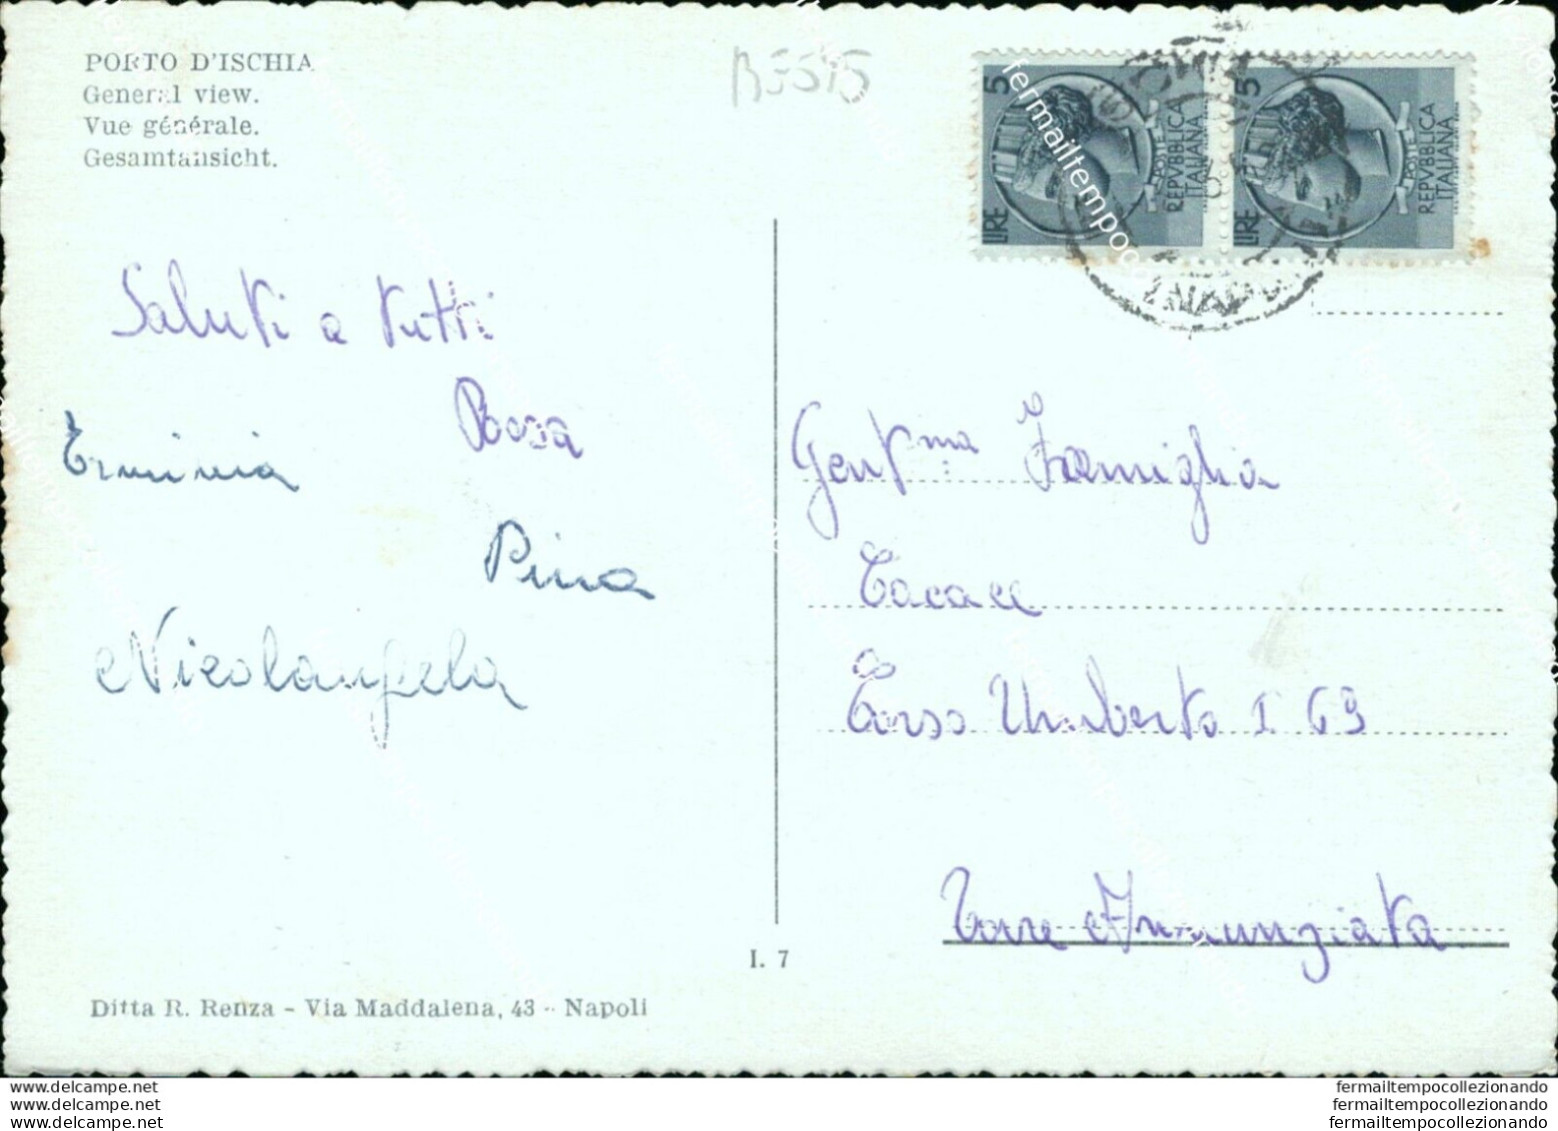 PORTO D'ISCHIA
General view.
Vue générale.
Gesamtansicht.
LIRE 5
POSTE
REPVBBLICA
ITALIANA
LIRE 5
POSTE
REPVBBLICA
ITALIANA
Saluti a tutti
Rosa
Erminia
Pina
Nicolangela
Gent.ma Famiglia
Corso Umberto I 69
Torre Annunziata
I. 7
Ditta R. Renza - Via Maddalena, 43 - Napoli
fermailtempocollezionando
fermailtempocollezionando
fermailtempocollezionando
www.delcampe.net
www.delcampe.net
www.delcampe.net